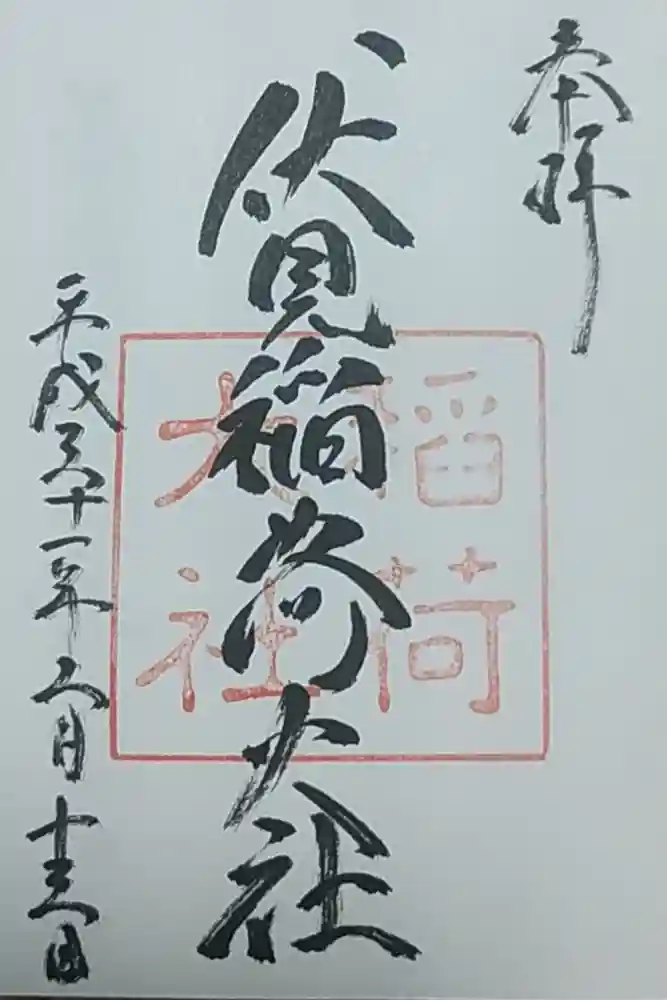 奉拝
伏見稲荷大社
稲荷
大社
平成三十一年 月十 日